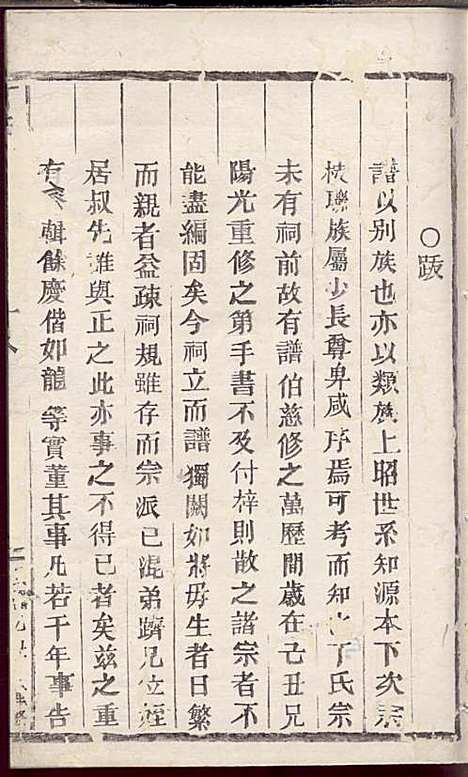 ○跋
譜以別族也亦以類族上昭世系知源本下次宗
枝聯族屬少長尊卑咸序焉可考而知也丁氏宗
未有祠前故有譜伯慈修之萬歷間歲在己丑兄
陽光重修之第手書不及付梓則散之諸宗者不
能盡編固矣今祠立而譜獨闕如將毋生者日繁
而親者益疎祠規雖存而宗派已混弟躋兄位姪
居叔先誰與正之此亦事之不得已者矣茲之重
有 輯餘慶偕如龍等實董其事凡若干年事告